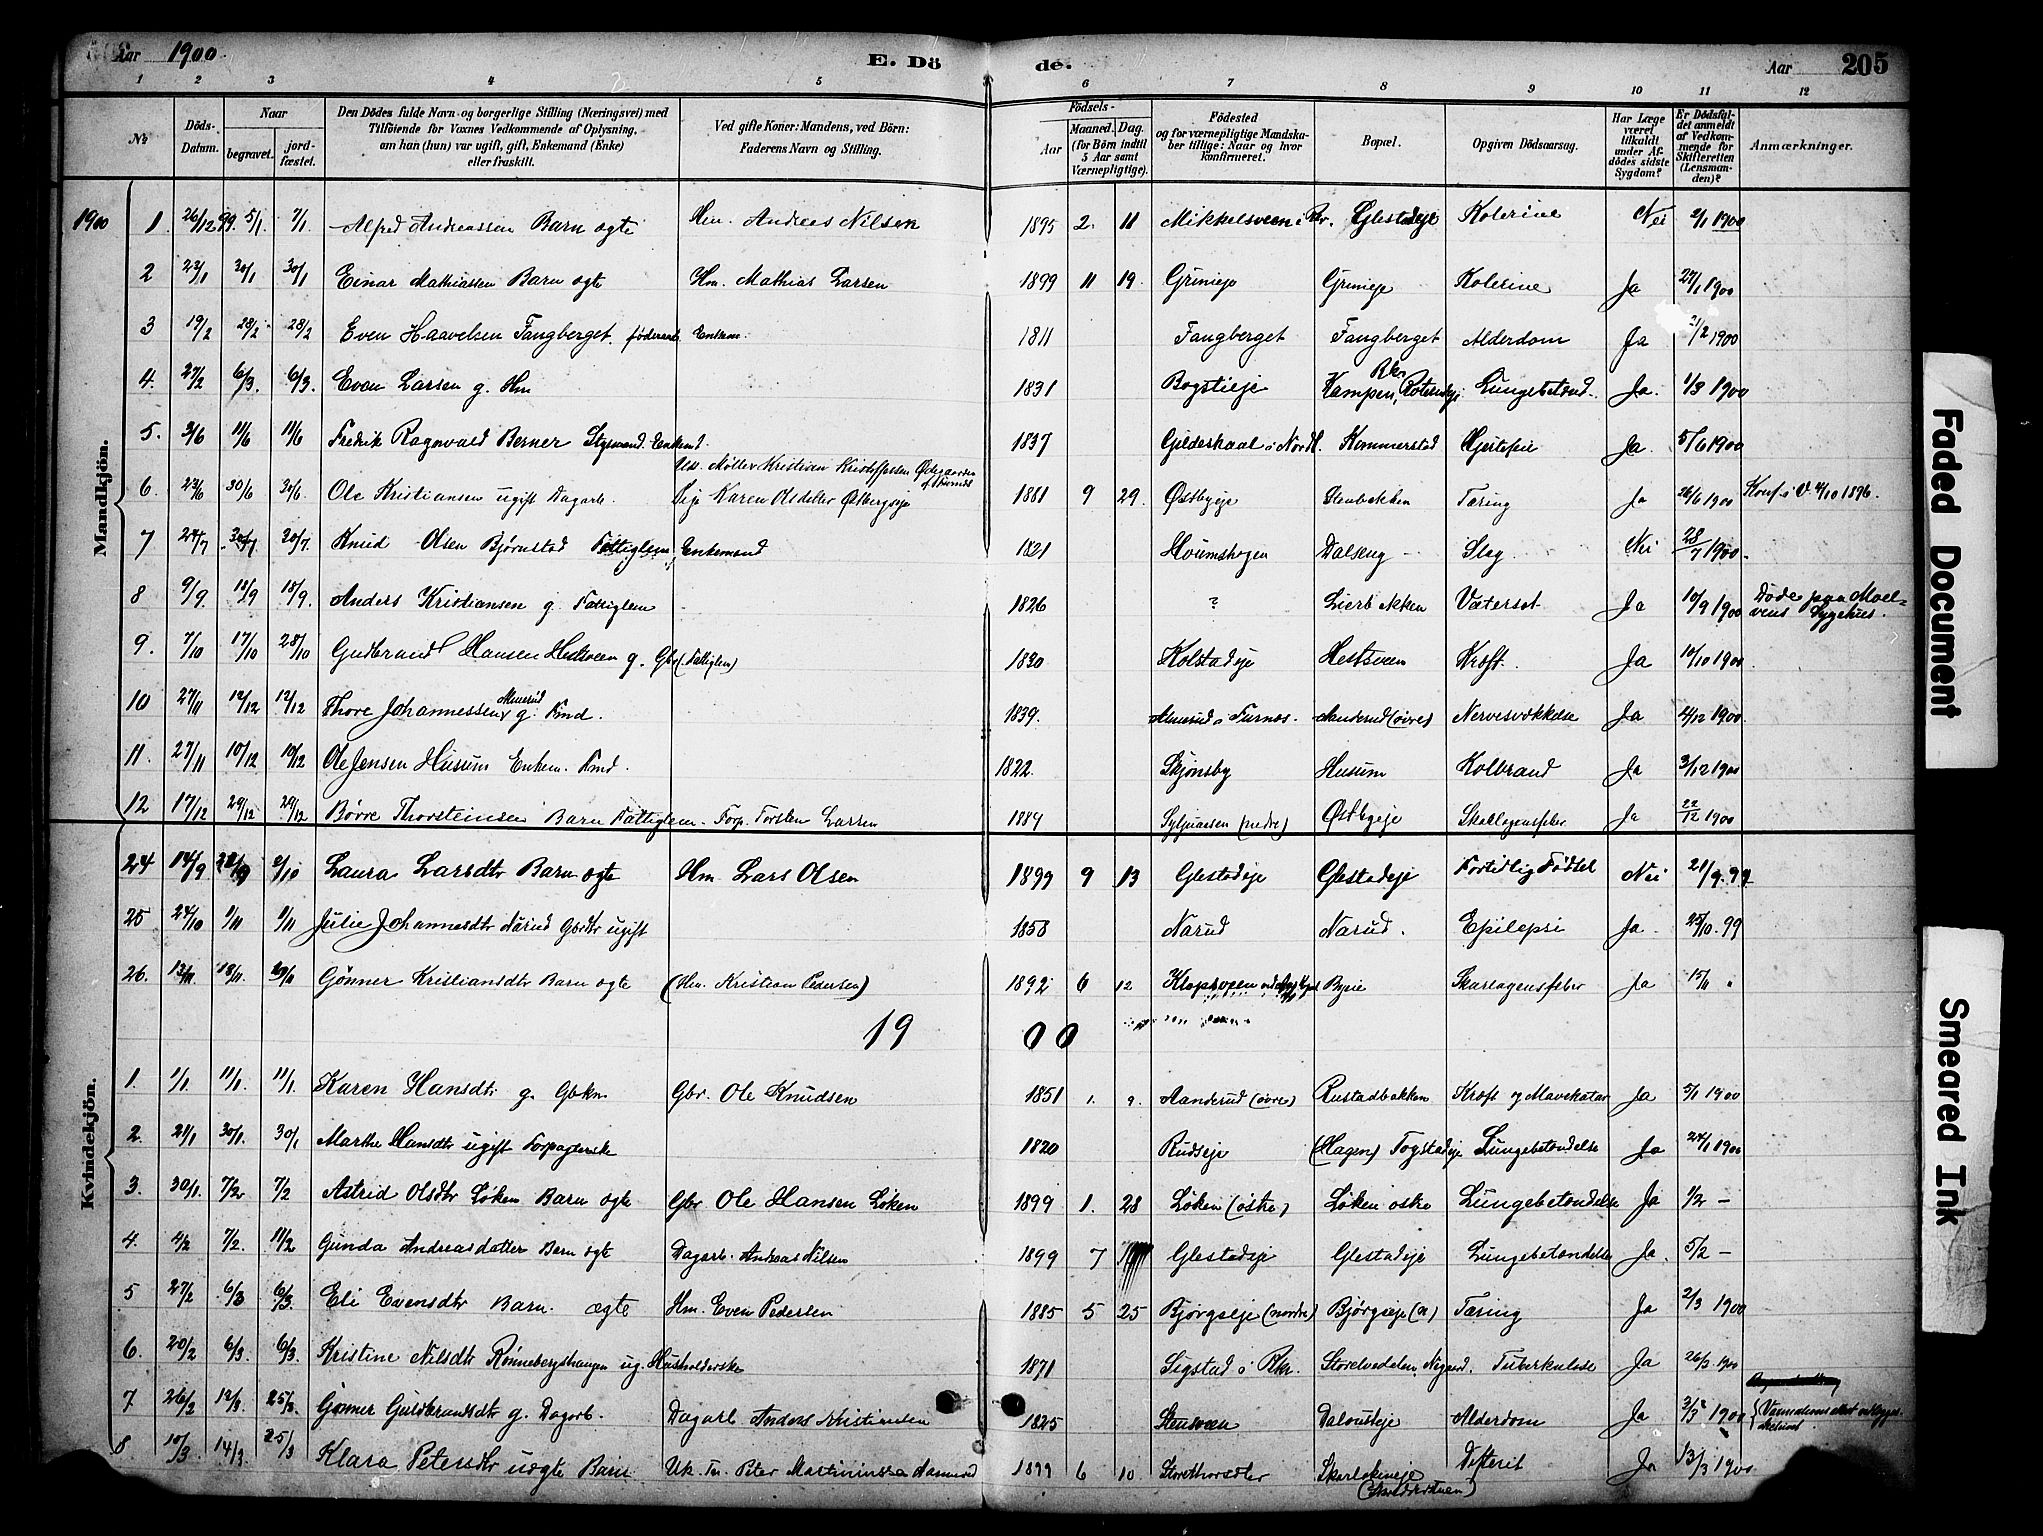 Aar 1900
E. Dö de.
Aar 205
1 2 3 4 5 6 7 8 9 10 11 12
№
Döds-Datum.
Naar
begravet.
jord-fæstet.
Den Dödes fulde Navn og borgerlige Stilling (Næringsvei) med
Tilföiende for Voxnes Vedkommende af Oplysning,
om han (hun) var ugift, gift, Enkemand (Enke)
eller fraskilt.
Ved gifte Koner: Mandens, ved Börn:
Faderens Navn og Stilling.
Födsels-
Aar
Maaned. Dag.
(for Börn indtil
5 Aar samt
Værnepligtige).
Födested
og for værnepligtige Mandska-
ber tillige: Naar og hvor
konfirmeret.
Bopæl.
Opgiven Dödsaarsag.
Har Læge
været
tilkaldt
under Af-
dödes sidste
Sygdom?
Er Dödsfal-
det anmeldt
af Vedkom-
mende for
Skifteretten
(Lensman-
den)?
Anmærkninger.
Mandkjön.
1900 1 26/12 99. 5/1 7/1 Alfred Andreassen Barn ægte Hm. Andreas Nilsen 1895 2. 11 Mikkelsveen i Rkr. Glestadeje Kolerine Nei 2/1 1900
2 23/1 30/1 30/1 Einar Mathiassen Barn ægte Hm. Mathias Larsen 1899 11 19. Grimeje Grimeje Kolerine Ja 27/1 1900
3 19/2 28/2 28/2 Even Haavelsen Fangberget. föderaads Enkem. 1811 Fangberget Fangberget Alderdom Ja 21/2 1900
4. 27/2 6/3. 6/3. Even Larsen g. Hm 1831 Bogstieje Kampen, Rkr Lungebetænd. Ja. 1/3 1900
5. 3/6 11/6 11/6 Fredrik Ragnvald Berner Styrmand. Enkemd. 1837 Gildeskaal i Nordl. Kommerstad Hjertefeil Ja. 5/6 1900
6. 23/6 30/6 30/6. Ole Kristiansen ugift Dagarb. Uæ. Möller Kristian Kristoffersen Ødegaarden af Furnæs
Pige Karen Olsdatter Østbergseje 1881 9 29. Østbyeje Stenbekken Tæring Ja 26/6 1900 Konf. i V. 4/10 1896.
7 24/7 30/7 30/7. Knud Olsen Bjørnstad Fattiglem Enkemand 1821 Houmshagen Dalseng Slag. Nei 28/7 1900.
8 9/9. 18/9 18/9. Anders Kristiansen g. Fattiglem 1826 ? Lierbekken Vatersot Ja 10/9 1900 Døde paa Moel-
vens Sygehus.
9. 7/10 17/10 28/10 Gudbrand Hansen Hestsveen g. Gbr (Fattiglem) 1820 Kolstadeje Hestsveen Kræft. Ja 10/10 1900
10 27/11 12/12 12/12 Thore Johannessen Almerud g. Kmd. 1839. Almerud i Furnæs. Aanderud (øvre) Nervesvækkelse Ja 4/12 1900.
11. 27/11 10/12 10/12 Ole Jensen Husum Enkem. Kmd. 1822. Skjønsby Husum Kolbrand Ja 3/12 1900
12 17/12 29/12 29/12 Børre Thorsteinsen Barn Fattiglem. Forp. Torsten Larsen 1889 Syljuaasen (nedre) Østbyeje Skarlagensfeber Ja 22/12 1900
Kvindekjön.
24 14/9 22/9 2/10 Laura Larsdtr Barn ægte Hm Lars Olsen 1899 9 13 Glestadeje Glestadeje Fortidlig Fødsel Nei 21/9.99
25 24/10 1/11 1/11 Julie Johannesdtr Narud Gbrdtr ugift 1858 Narud Narud. Epilepsi Ja. 25/10.99
26. 13/11. 18/11. 29/11 Gønner Kristiansdtr Barn ægte (Hm. Kristian Pedersen) 1892 6 12 Klopsveen Byeie Skarlagensfeber Ja 15/11 "
19 00
1. 1/1 11/1. 11/1. Karen Hansdtr g. Gbkn Gbr. Ole Knudsen 1851 1. 9. Aanderud (øvre) Rustadbakken Kræft og Mavekatar Ja 5/1 1900
2. 21/1 30/1. 30/1 Marthe Hansdtr ugift Forpagterske 1820 Rudseje (Hagen) Togstadeje Lungebetændelse Ja 24/1 1900
3. 30/1. 7/2 7/2 Astrid Olsdtr Løken Barn ægte Gbr Ole Hansen Løken 1899 1. 28 Løken (østre) Løken østre Lungebetændelse Ja 1/2 –
4. 4/2 7/2. 11/2 Gunda Andreasdatter Barn ægte Dagarb. Andreas Nilsen 1899 7 Glestadeje Glestadeje Lungebetændelse Ja. 5/2 –
5 27/2 6/3 6/3. Eli Evensdtr Barn. ægte Hm. Even Pedersen 1885 5 25 Bjørgseje (nordre) Bjørgseje Tæring Ja 2/3 1900
6. 20/2 6/3. 6/3. Kristine Nilsdtr Rønnebergshaugen ug. Husholderske 1871 Sigstad i Rkr. Storelvedalen, Nygaard. Tuberkulose Ja 26/3 1900
7. 26/2 12/3. 25/3. Gønner Guldbrandsdtr g. Dagarb. Dagarb. Anders Kristiansen 1825 Stensveen Dalouskeje Alderdom Ja 2/3 1900.
8 10/3 14/3 25/3 Klara Petersdtr uægte Barn Uk. Tn. Peter Martiniussen Aamrud 1899 6 10. Storethorsdler Skarlokeneje Difterit Ja 13/3 1900
Faded Document
Smeared Ink